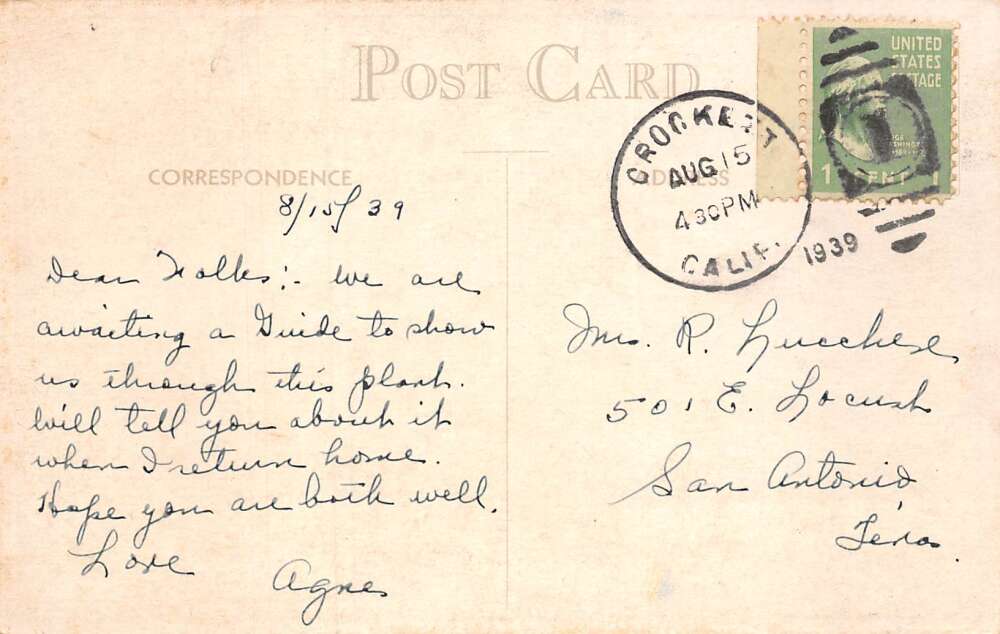 POST CARD
CORRESPONDENCE
ADDRESS
UNITED
STATES
POSTAGE
1 CENT 1
CROCKETT
AUG 15
4 30 PM
CALIF.
1939
8/15/39
Dear Folks:- we are
awaiting a Guide to show
us through this plant.
Will tell you about it
when I return home.
Hope you are both well.
Love
Agnes
Mrs. R. Lucchese
501 E. Locust
San Antonio,
Texas.